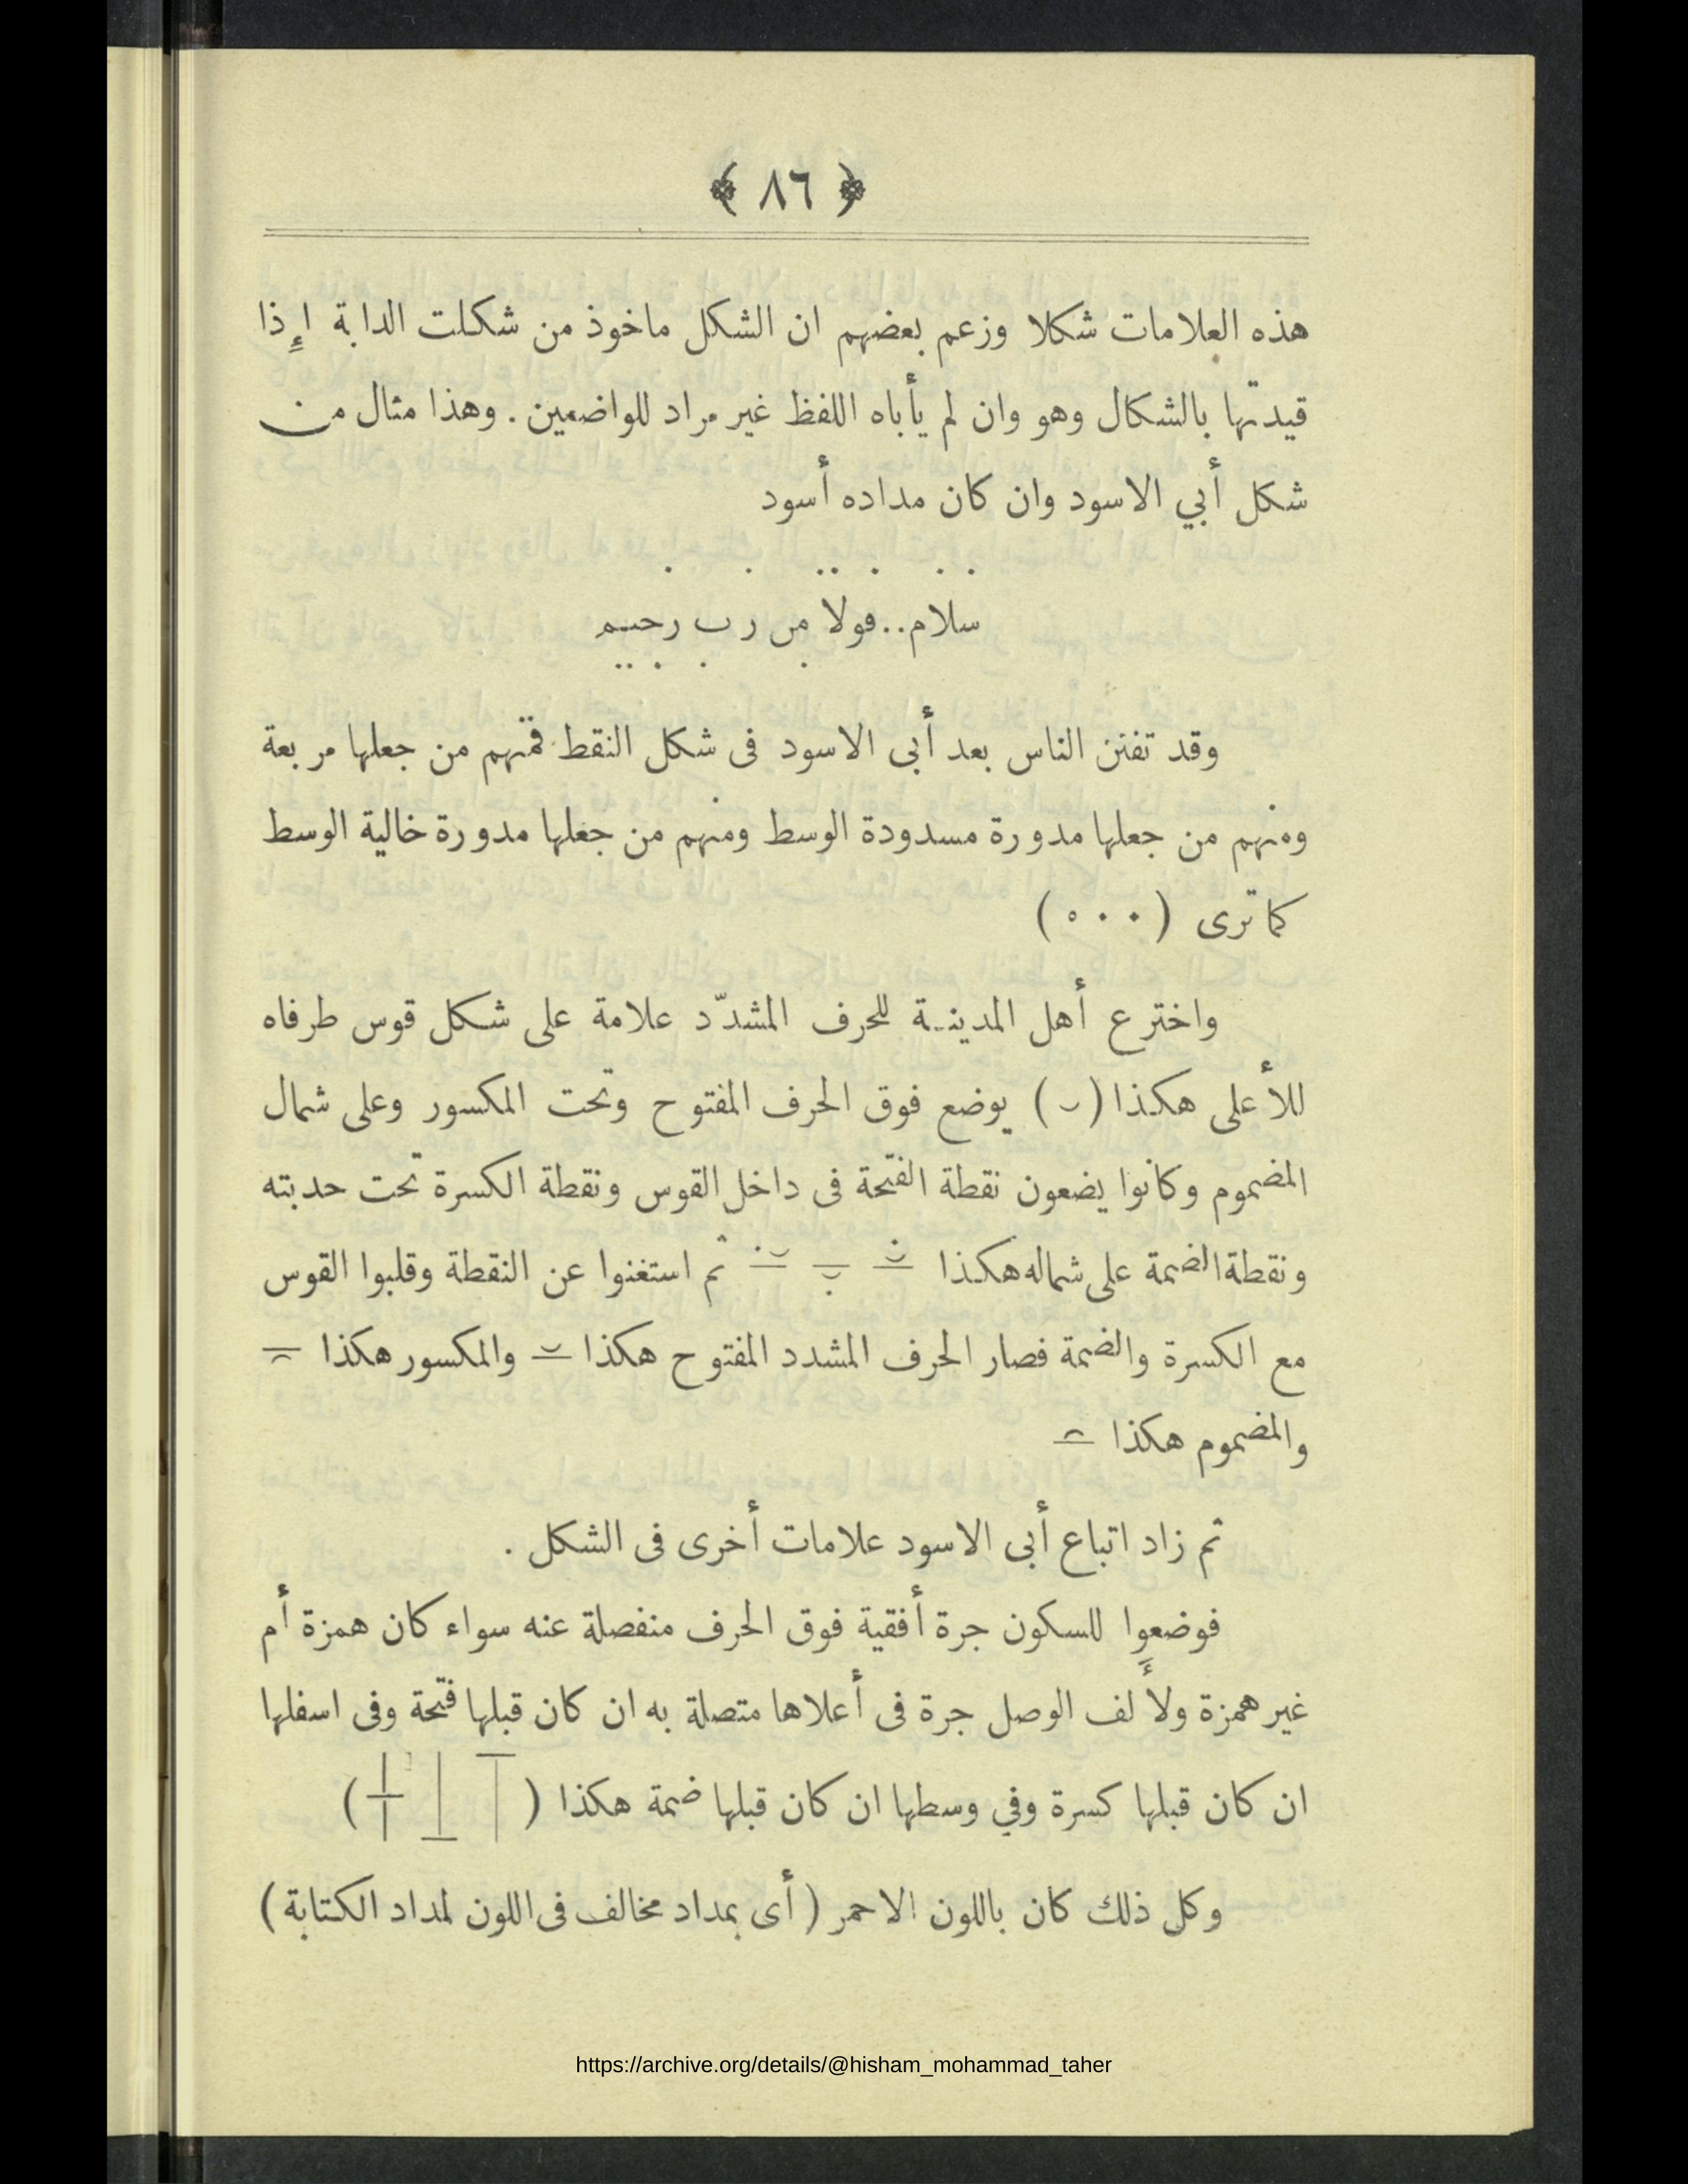 ﴿ ٨٦ ﴾
هذه العلامات شكلا وزعم بعضهم ان الشكل ماخوذ من شكلت الدابة إِذا
قيدتها بالشكال وهو وان لم يأباه اللفظ غير مراد للواضعين . وهذا مثال من
شكل أبي الاسود وان كان مداده أسود
سلام..قولا من رب رحيم
وقد تفنن الناس بعد أبى الاسود فى شكل النقط فمنهم من جعلها مربعة
ومنهم من جعلها مدورة مسدودة الوسط ومنهم من جعلها مدورة خالية الوسط
كما ترى (٠ ٠ ه)
واخترع أهل المدينـة للحرف المشدّد علامة على شكل قوس طرفاه
للأعلى هكذا (ں) يوضع فوق الحرف المفتوح وتحت المكسور وعلى شمال
المضموم وكانوا يضعون نقطة الفتحة فى داخل القوس ونقطة الكسرة تحت حدبته
ونقطة الضمة على شماله هكذا ثم استغنوا عن النقطة وقلبوا القوس
مع الكسرة والضمة فصار الحرف المشدد المفتوح هكذا والمكسور هكذا
والمضموم هكذا
ثم زاد اتباع أبى الاسود علامات أخرى فى الشكل .
فوضعوا للسكون جرة أفقية فوق الحرف منفصلة عنه سواء كان همزة أم
غير همزة ولأَلف الوصل جرة فى أعلاها متصلة به ان كان قبلها فتحة وفى اسفلها
ان كان قبلها كسرة وفي وسطها ان كان قبلها ضمة هكذا ( )
وكل ذلك كان باللون الاحمر ( أى بمداد مخالف فى اللون لمداد الكتابة )
https://archive.org/details/@hisham_mohammad_taher